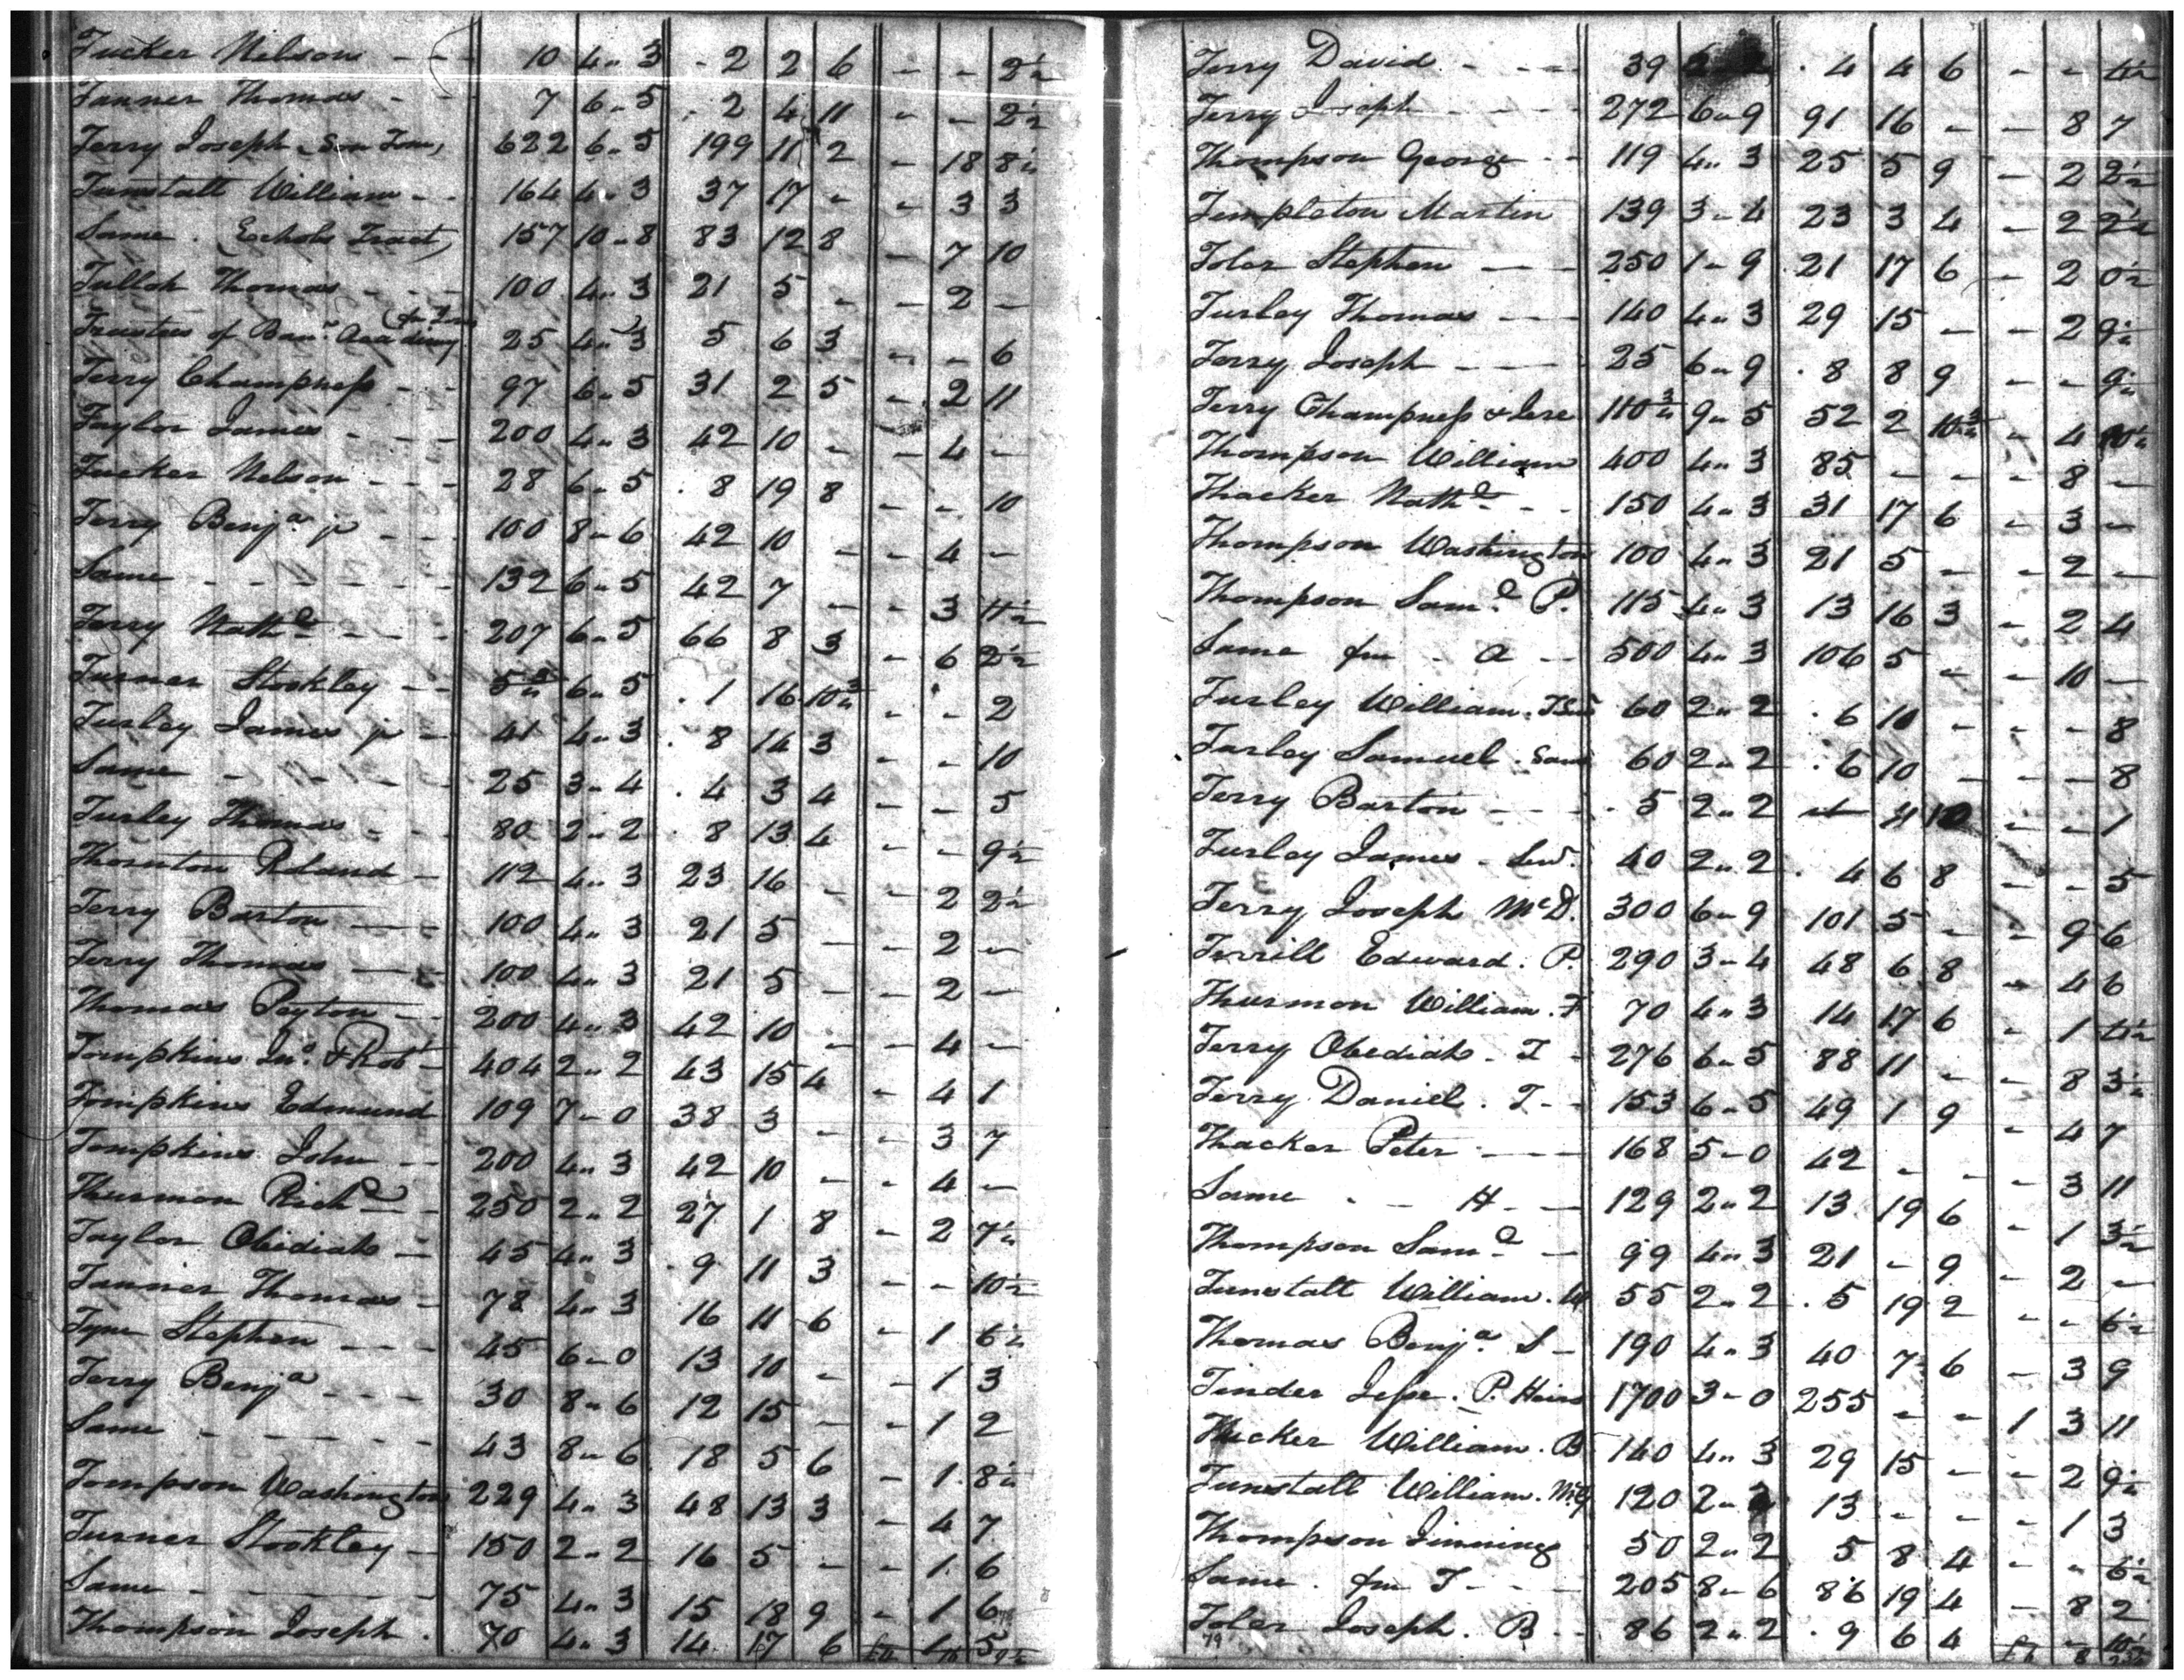 Tucker Nelson - - 10 4 " 3 2 2 6 - - 2½
Tanner Thomas - - 7 6 " 5 2 4 11 - - 2½
Terry Joseph Son Tom, 622 6 " 5 199 11 2 - 18 8½
Tunstall William - - 164 4 " 3 37 17 - - 3 3
Same . Echols Tract, 157 10 " 8 83 12 8 - 7 10
Tulloh Thomas - - - 100 4 " 3 21 5 - - 2 -
Trustees of Ban.r Academy 25 4 " 3 5 6 3 - - 6
Terry Champness - - 97 6 " 5 31 2 5 - 2 11
Taylor James - - - 200 4 " 3 42 10 - - 4 -
Tucker Nelson - - - 28 6 " 5 8 19 8 - - 10
Terry Benja jr - - - 100 8 " 6 42 10 - - 4 -
Same - - - - - 132 6 " 5 42 7 - - 3 11½
Terry Nathl - - - 207 6 " 5 66 8 3 - 6 2½
Turner Stokley - - 6 " 5 1 16 10¾ - - 2
Turley James jr - 41 4 " 3 8 14 3 - - 10
Same - - - - 25 3 " 4 4 3 4 - - 5
Turley Thomas - - 80 2 " 2 8 13 4 - - 9½
Thornton Roland - 112 4 " 3 23 16 - - 2 2½
Terry Barton - - 100 4 " 3 21 5 - - 2 -
Terry Thomas - - 100 4 " 3 21 5 - - 2 -
Thomas Peyton - - 200 4 " 3 42 10 - - 4 -
Tompkins Jno. & Robt - 404 2 " 2 43 15 4 - 4 1
Tompkins Edmund 109 7 " 0 38 3 - - 3 7
Tompkins John - - 200 4 " 3 42 10 - - 4 -
Thurmon Richd - - 250 2 " 2 27 1 8 - 2 7½
Taylor Obediah - 45 4 " 3 9 11 3 - - 10½
Tanner Thomas - 78 4 " 3 16 11 6 - 1 6½
Tyne Stephen - - 45 6 " 0 13 10 - - 1 3
Terry Benja - - - 30 8 " 6 12 15 - - 1 2
Same - - - - - 43 8 " 6 18 5 6 - 1 8½
Tompson Washington 229 4 " 3 48 13 3 - 4 7
Turner Stokley - 150 2 " 2 16 5 - - 1 6
Same - - - - 75 4 " 3 15 18 9 - 1 6
Thompson Joseph . 70 4 " 3 14 17 6 1 5
Terry David - - - 39 4 4 6 - - 4½
Terry Joseph - - - 272 6 " 9 91 16 - - 8 7
Thompson George - - 119 4 " 3 25 5 9 - 2 2½
Templeton Martin 139 3 " 4 23 3 4 - 2 2½
Toler Stephen - - - 250 1 " 9 21 17 6 - 2 0½
Turley Thomas - - 140 4 " 3 29 15 - - 2 9½
Terry Joseph - - - 25 6 " 9 8 8 9 - - 9½
Terry Champness & Jere 110¾ 9 " 5 52 2 10¾ - 4 10½
Thompson William 400 4 " 3 85 - - - 8 -
Thacker Nathl - - 150 4 " 3 31 17 6 - 3 -
Thompson Washington 100 4 " 3 21 5 - - 2 -
Thompson Saml P. 115 4 " 3 13 16 3 - 2 4
Same fm - a - 500 4 " 3 106 5 - - 10 -
Turley William . 60 2 " 2 6 10 - - - 8
Turley Samuel . Same 60 2 " 2 6 10 - - - 8
Terry Barton - - - 5 2 " 2 10 - - 1
Turley James - Lew. 40 2 " 2 4 6 8 - - 5
Terry Joseph McD. 300 6 " 9 101 5 - - 9 6
Terrill Edward . P. 290 3 " 4 48 6 8 - 4 6
Thurmon William . F 70 4 " 3 14 17 6 - 1 4½
Terry Obediah . T - 276 6 " 5 88 11 - - 8 3½
Terry Daniel . T - - 153 6 " 5 49 1 9 - 4 7
Thacker Peter - - - 168 5 " 0 42 - - - 3 11
Same . - H - - 129 2 " 2 13 19 6 - 1 3½
Thompson Saml - 99 4 " 3 21 - 9 - 2 -
Tunstall William . W 55 2 " 2 5 19 2 - - 6½
Thomas Benja . S - 190 4 " 3 40 7 6 - 3 9
Tinder Jesse . P. Heirs 1700 3 " 0 255 - - 1 3 11
Tucker William . B 140 4 " 3 29 15 - - 2 9½
Tunstall William . 120 2 " 2 13 - - - 1 3
Thompson Jinnings 50 2 " 2 5 8 4 - - 6½
Same . fm T - - - 205 8 " 6 86 19 4 - 8 2
Toler Joseph . B - - 86 2 " 2 9 6 4 - 10½
79